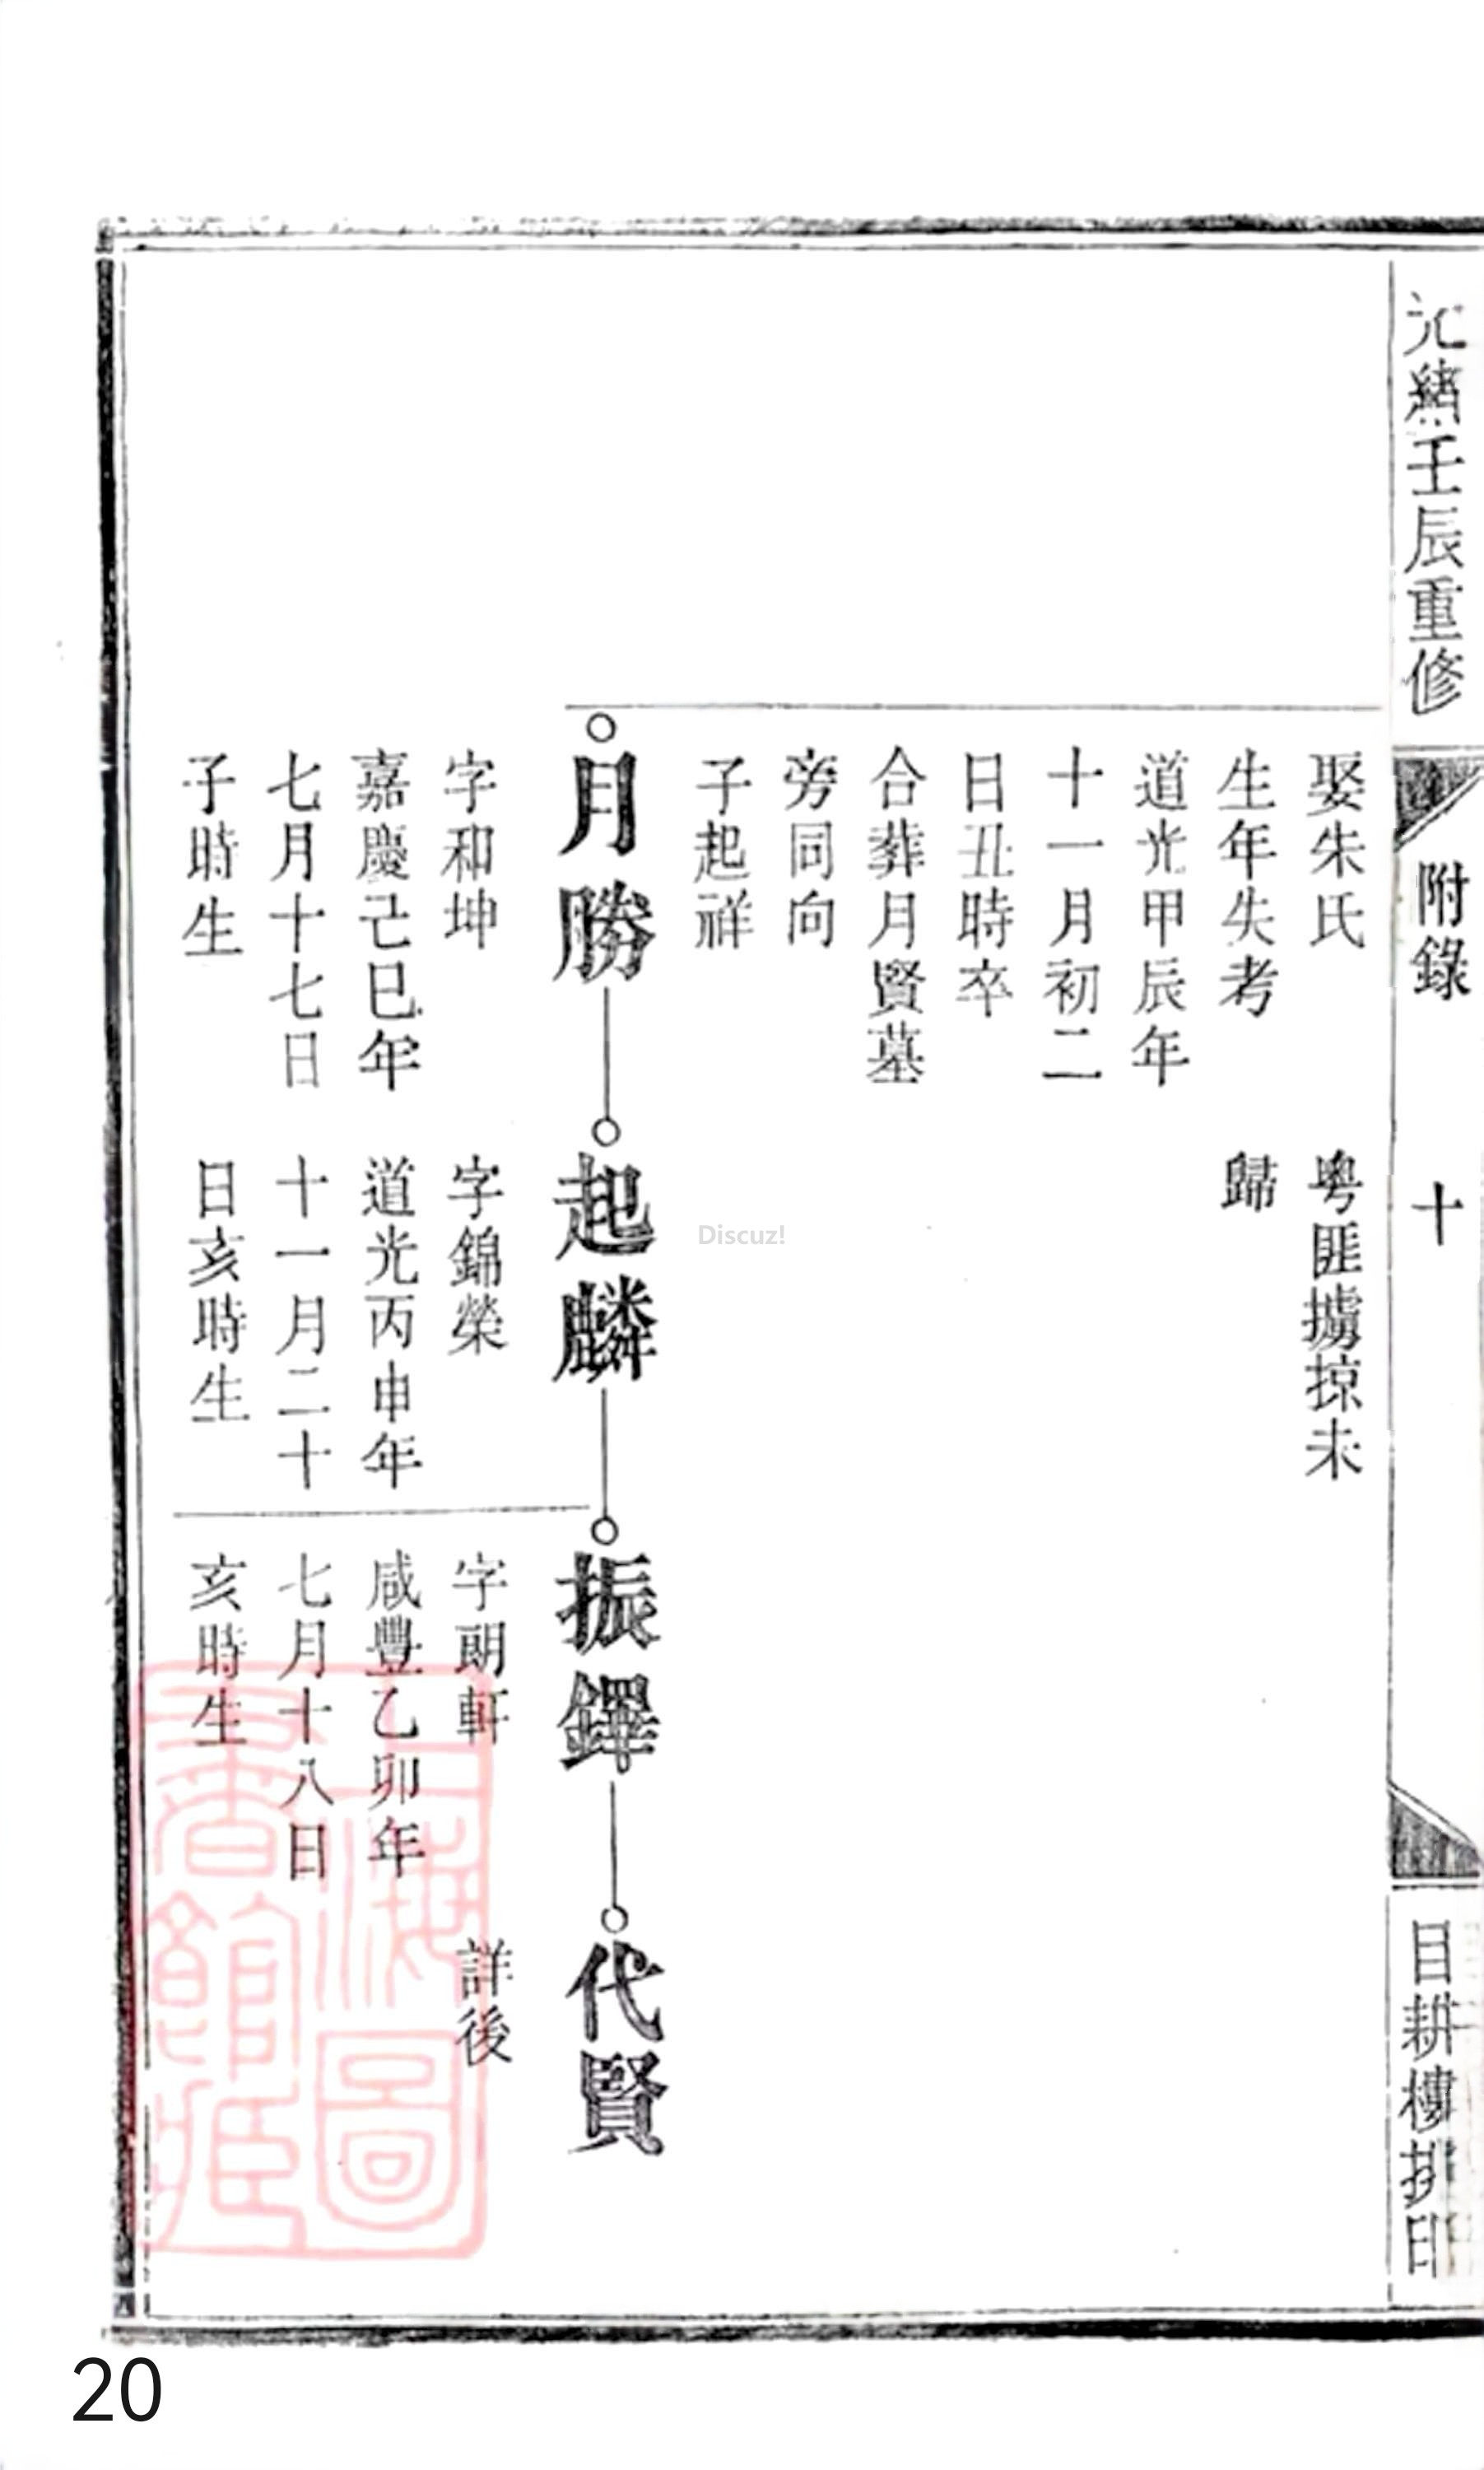 光緒壬辰重修
附錄
十
目耕樓排印
娶朱氏
生年失考
道光甲辰年
十一月初二
日丑時卒
合葬月賢墓
旁同向
子起祥
粵匪擄掠未
歸
月勝
字和坤
嘉慶己巳年
七月十七日
子時生
起麟
字錦榮
道光丙申年
十一月二十
日亥時生
振鐸
字朗軒
咸豐乙卯年
七月十八日
亥時生
代賢
詳後
上海圖書館藏
Discuz!
20